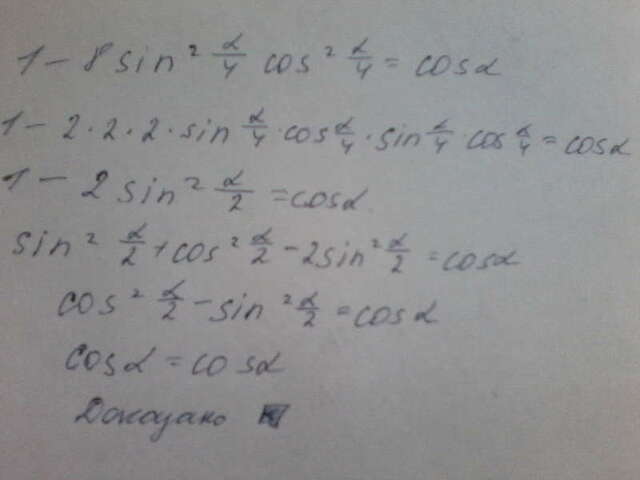 1 - 8 sin² α/4 cos² α/4 = cosα
1 - 2·2·2·sin α/4·cos α/4·sin α/4·cos α/4 = cosα
1 - 2 sin² α/2 = cosα
sin² α/2 + cos² α/2 - 2sin² α/2 = cosα
cos² α/2 - sin² α/2 = cosα
cosα = cosα
Доказано